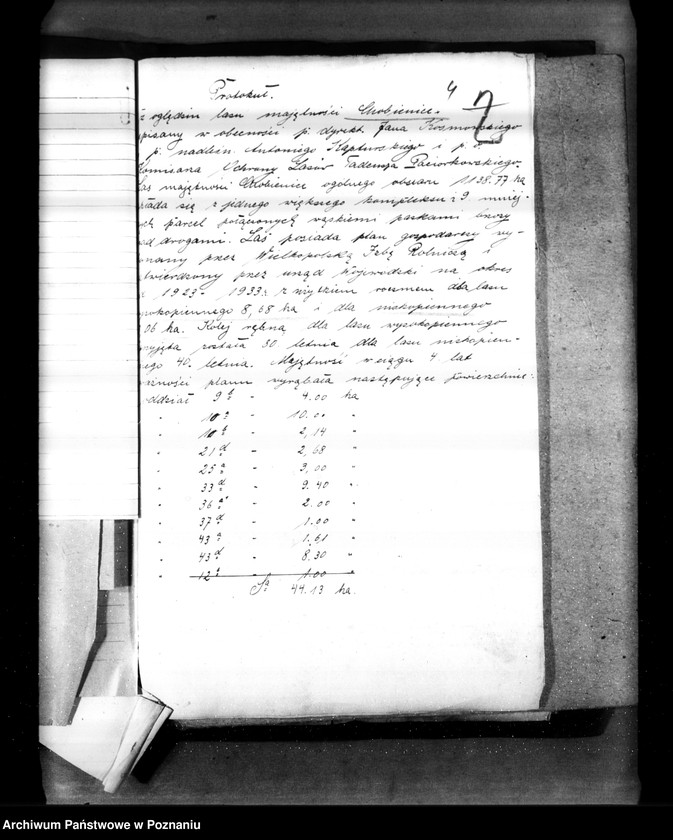 4
2
Protokuł.
z oględzin lasu majętności Chobienice.
pisany w obecności p. dyrekt. Jana
p. nadleśn. Antoniego Kapturskiego i p.
Ochrony Lasów Tadeusza Paciorkowskiego.
Las majętności Chobienice ogólnego obszaru 1138.77 ha
składa się z jednego większego kompleksu z 9 mniej-
szych parcel połączonych wąskiemi paskami brzozy
nad drogami. Las posiada plan gospodarczy wy-
konany przez Wielkopolską Izbę Rolniczą i
zatwierdzony przez urząd Wojewódzki na okres
1923 - 1933 r. z wyrębem rocznem dla lasu
wysokopiennego 8,68 ha i dla niskopiennego
06 ha. Kolej rębną dla lasu wysokopiennego
przyjęta została 80 letnia dla lasu niskopien-
nego 40. letnia. Majętność w ciągu 4 lat
ważności planu wyrąbała następujące powierzchnie:
oddział 9 b - 4.00 ha
" 10 a - 10.00 "
" 10 b - 2,14 "
" 21 d - 2,68 "
" 25 a - 3,00 "
" 33 d - 9.40 "
" 36 a - 2.00 "
" 37 d - 1.00 "
" 43 a - 1.61 "
" 43 d - 8.30 "
" 12 a - 1.00 "
Sa 44.13 ha.
Archiwum Państwowe w Poznaniu